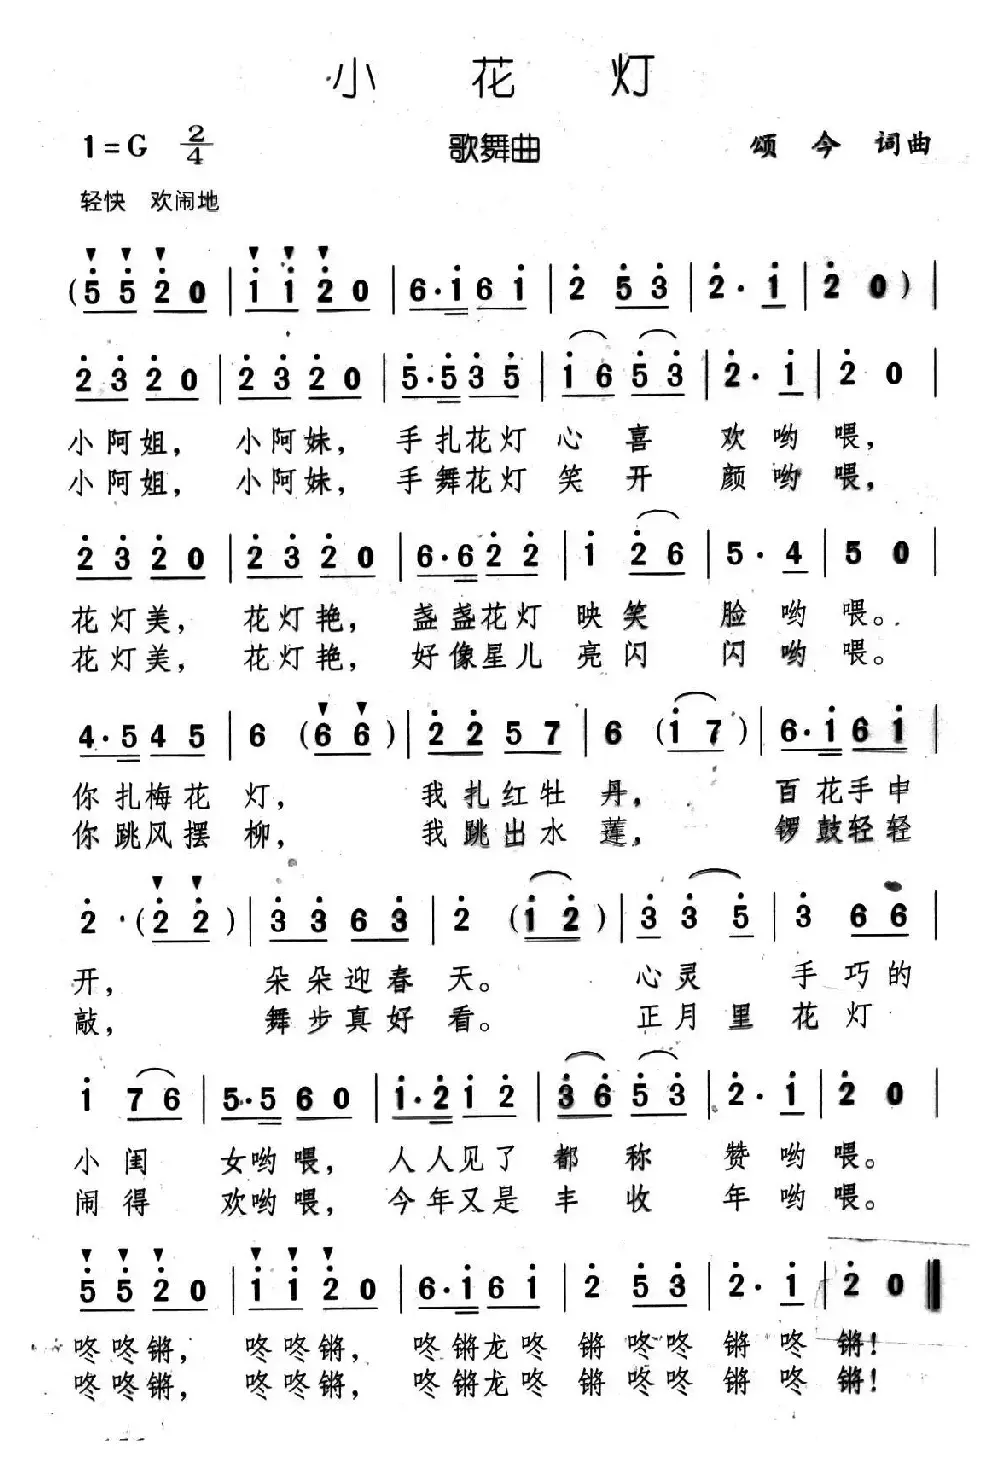 小花灯
1=G 2/4 歌舞曲 颂今 词曲
轻快 欢闹地
(5 5 2 0 | 1 1 2 0 | 6·1 6 1 | 2 5 3 | 2· 1 | 2 0) |
2 3 2 0 | 2 3 2 0 | 5·5 3 5 | 1 6 5 3 | 2· 1 | 2 0 |
小阿姐, 小阿妹, 手扎花灯 心喜 欢哟喂,
小阿姐, 小阿妹, 手舞花灯 笑开 颜哟喂,
2 3 2 0 | 2 3 2 0 | 6·6 2 2 | 1 2 6 | 5· 4 | 5 0 |
花灯美, 花灯艳, 盏盏花灯 映笑 脸哟喂。
花灯美, 花灯艳, 好像星儿 亮闪 闪哟喂。
4·5 4 5 | 6 (6 6) | 2 2 5 7 | 6 (1 7) | 6·1 6 1 |
你扎梅花 灯, 我扎红牡 丹, 百花手中
你跳风摆 柳, 我跳出水 莲, 锣鼓轻轻
2·(2 2) | 3 3 6 3 | 2 (1 2) | 3 3 5 | 3 6 6 |
开, 朵朵迎春 天。 心灵 手巧的
敲, 舞步真好 看。 正月里 花灯
1 7 6 | 5·5 6 0 | 1·2 1 2 | 3 6 5 3 | 2· 1 | 2 0 |
小闺 女哟喂, 人人见了 都称 赞哟喂。
闹得 欢哟喂, 今年又是 丰收 年哟喂。
5 5 2 0 | 1 1 2 0 | 6·1 6 1 | 2 5 3 | 2· 1 | 2 0 ‖
咚咚锵, 咚咚锵, 咚锵龙咚 锵咚咚 锵咚 锵!
咚咚锵, 咚咚锵, 咚锵龙咚 锵咚咚 锵咚 锵!